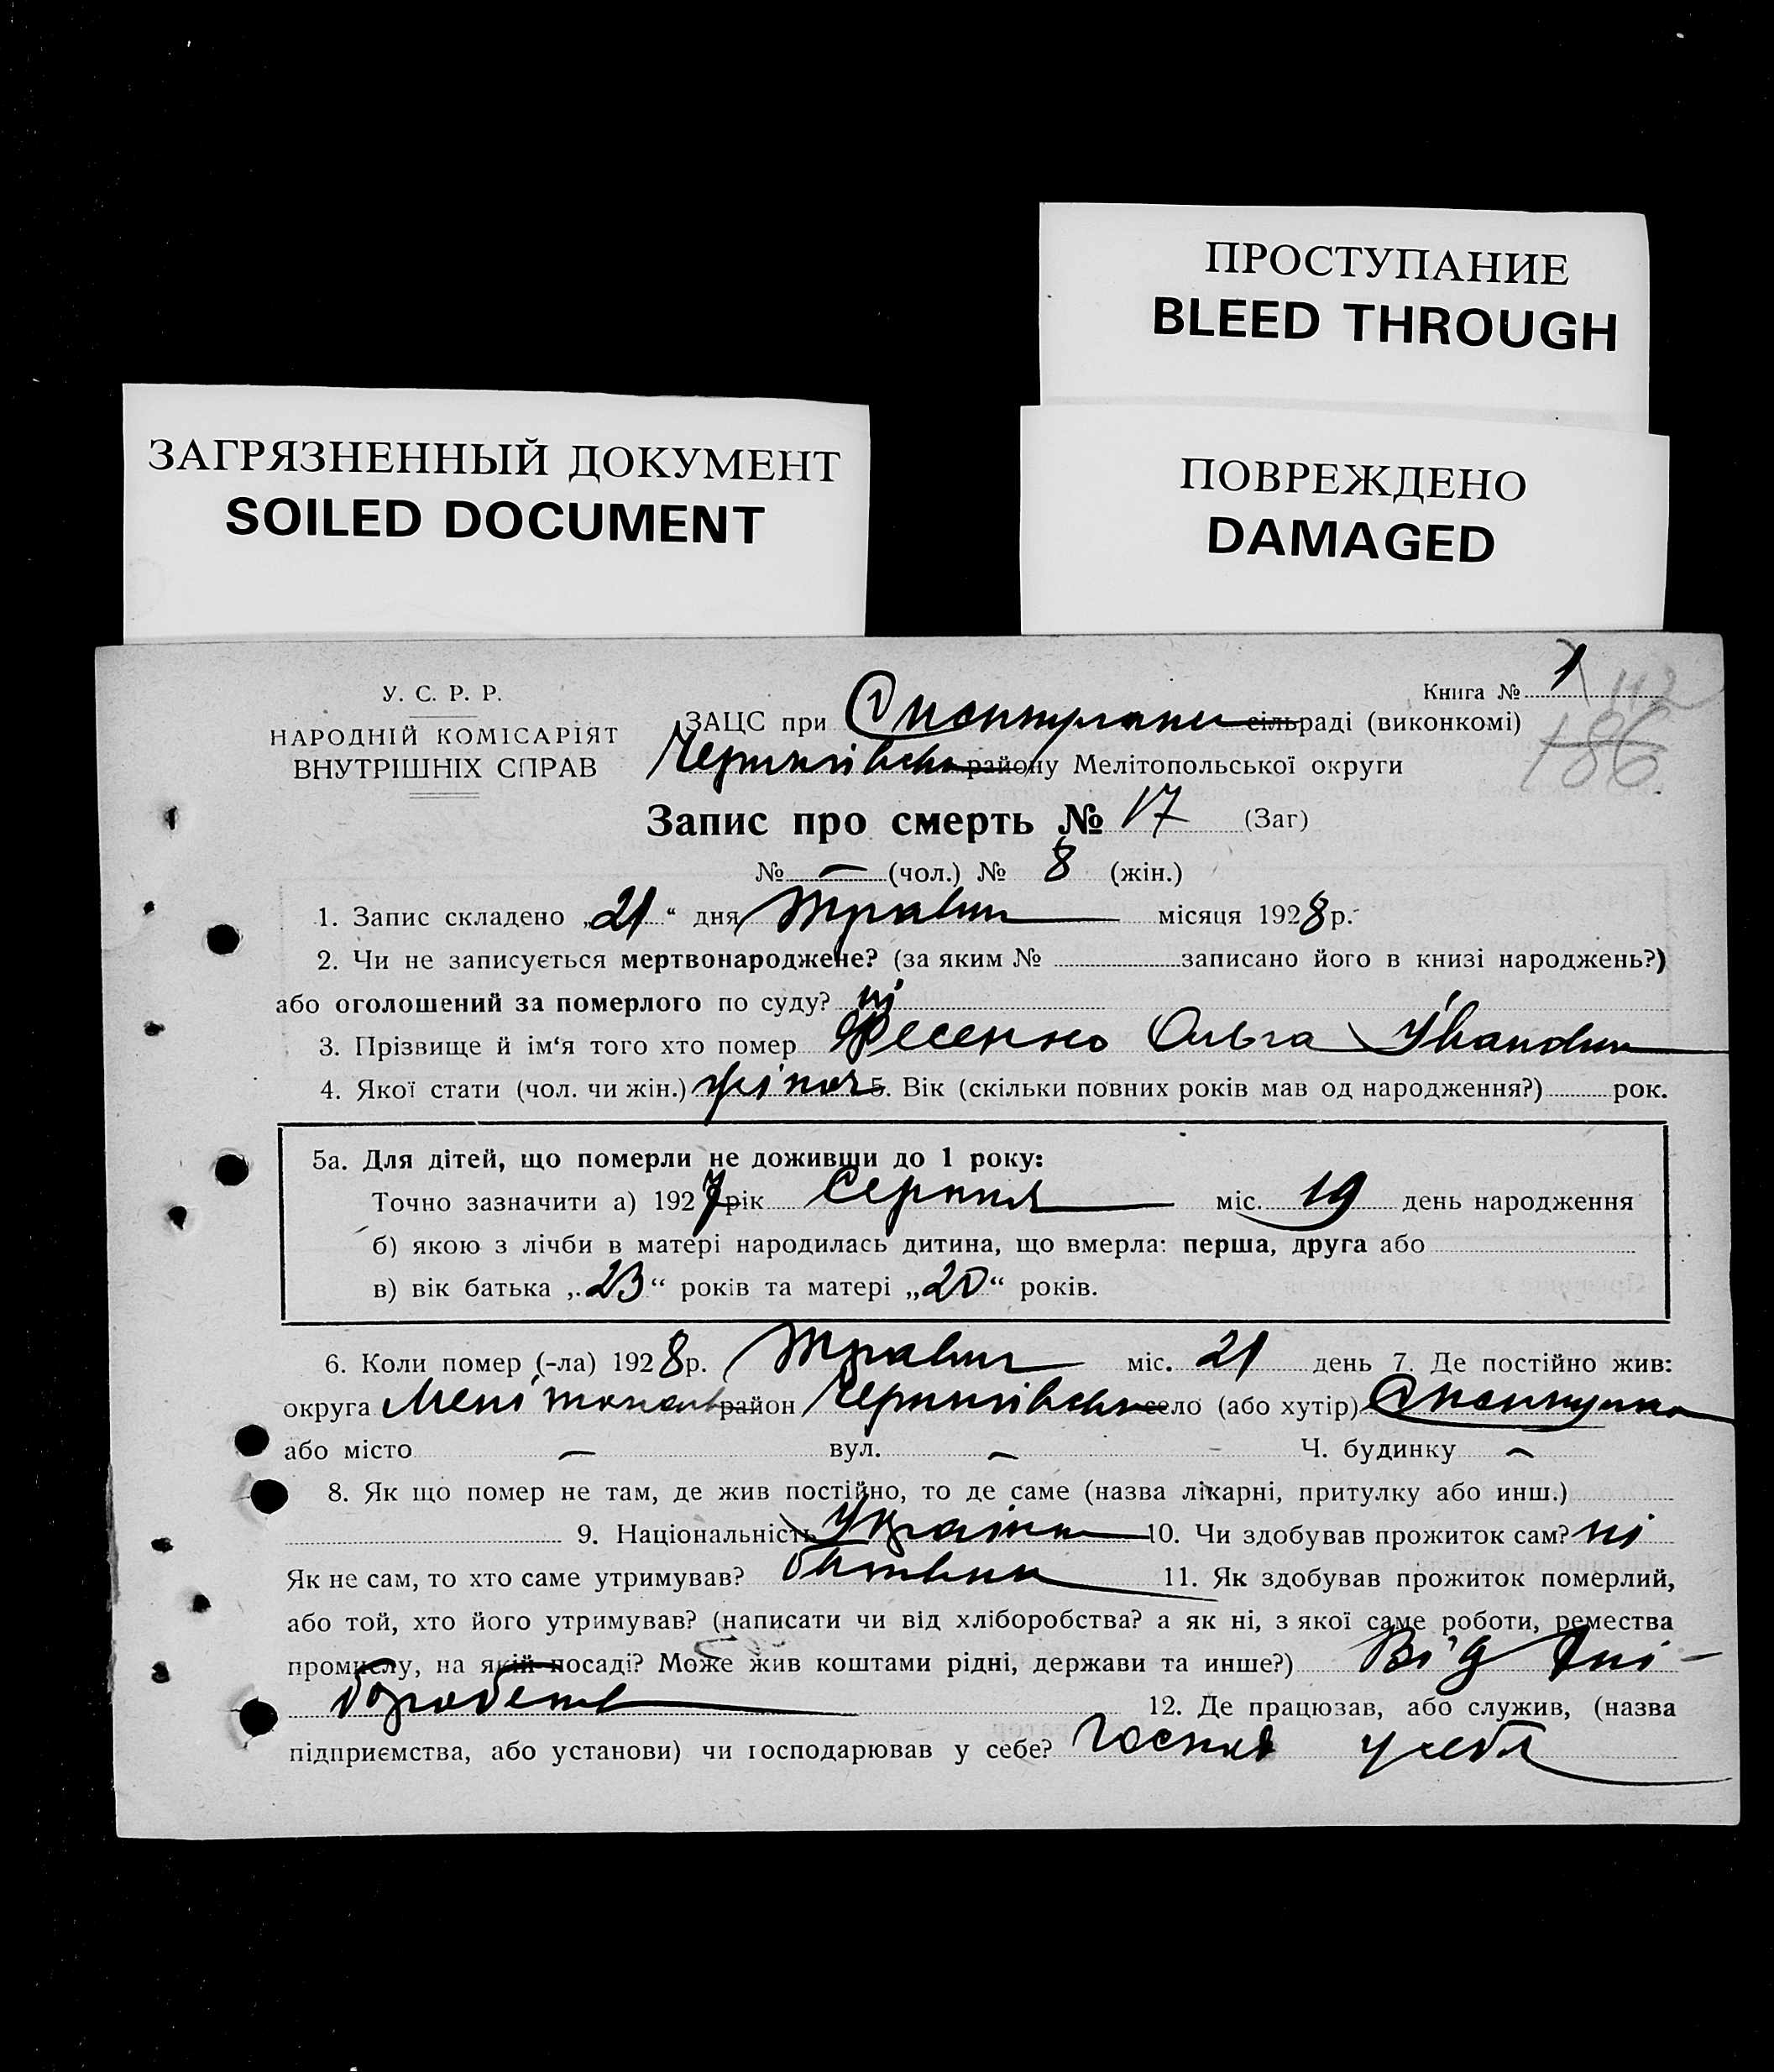 ПРОСТУПАНИЕ
BLEED THROUGH
ЗАГРЯЗНЕННЫЙ ДОКУМЕНТ
SOILED DOCUMENT
ПОВРЕЖДЕНО
DAMAGED
У. С. Р. Р.
НАРОДНІЙ КОМІСАРІЯТ
ВНУТРІШНІХ СПРАВ
Книга № 1
112
186
ЗАЦС при сільраді (виконкомі)
Чернигівськ району Мелітопольської округи
Запис про смерть № 17 (Заг)
№ — (чол.) № 8 (жін.)
1. Запис складено „21“ дня Травня місяця 1928 р.
2. Чи не записується мертвонароджене? (за яким № записано його в книзі народжень?)
або оголошений за померлого по суду? ні
3. Прізвище й ім‘я того хто помер Фесенко Ольга Івановн
4. Якої стати (чол. чи жін.) жіноч 5. Вік (скільки повних років мав од народження?) рок.
5а. Для дітей, що померли не доживши до 1 року:
Точно зазначити а) 1927 рік Серпня міс. 19 день народження
б) якою з лічби в матері народилась дитина, що вмерла: перша, друга або
в) вік батька „23“ років та матері „20“ років.
6. Коли помер (-ла) 1928 р. Травня міс. 21 день 7. Де постійно жив:
округа Меліtopольськ район Чернигівськ село (або хутір)
або місто — вул. — Ч. будинку —
8. Як що помер не там, де жив постійно, то де саме (назва лікарні, притулку або инш.)
9. Національність Україн 10. Чи здобував прожиток сам? ні
Як не сам, то хто саме утримував? батьки 11. Як здобував прожиток померлий,
або той, хто його утримував? (написати чи від хліборобства? а як ні, з якої саме роботи, ремества
промислу, на якій посаді? Може жив коштами рідні, держави та инше?) Від хлі-
боробств 12. Де працював, або служив, (назва
підприємства, або установи) чи господарював у себе? Господ у себе